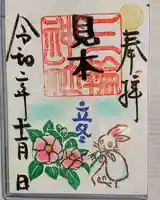 奉拝
見本
三輪神社
立冬
令和二年十一月 日